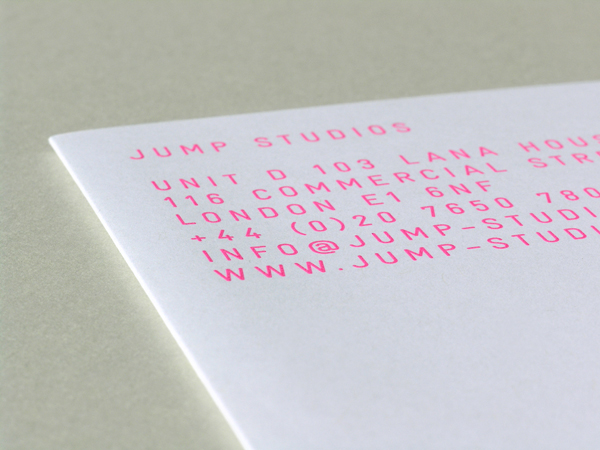 JUMP STUDIOS
UNIT D 103 LANA HOUS
116 COMMERCIAL STR
LONDON E1 6NF
+44 (0)20 7650 780
INFO@JUMP-STUDI
WWW.JUMP-STUDI